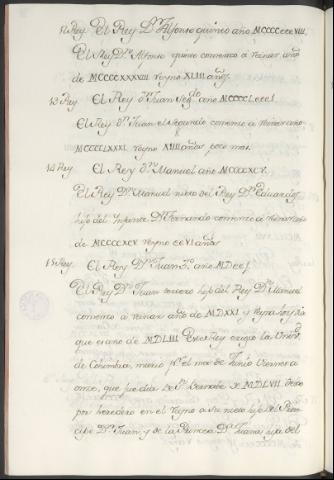 12 Rey. El Rey Dn. Alfonso quinto año MCCCCxxxVIII.
El Rey Dn. Alfonso quinto comenzo a reinar año
de MCCCCXXXVIII reyno XLIII años.
13 Rey. El Rey Dn. Juan segdo. año MCCCCLxxxI.
El Rey Dn. Juan el segundo comenzo a reinar año
MCCCCLXXXI reyno XIIII años poco mas.
14 Rey. El Rey Dn. Manuel año MCCCCXCV.
El Rey Dn. Manuel nieto del Rey Dn. Eduardo, y
hijo del Infante Dn. Fernando comenzo a reinar año
de MCCCCXCV reyno XXVI años.
15 Rey. El Rey Dn. Juan 3º. año MDxxI.
El Rey Dn. Juan tercero hijo del Rey Dn. Manuel
comenzo a reinar año de MDXXI y Reyna hoy dia
que es año de MDLIII. Este Rey erigio la Univd.
de Coimbra, murio en el mes de Junio viernes a
once, que fue dia de Sn. Bernabe de MDLVII. dexo
por heredero en el reyno a su nieto hijo del Prin-
cipe Dn. Juan, y de la Princesa Da. Juana, hija del